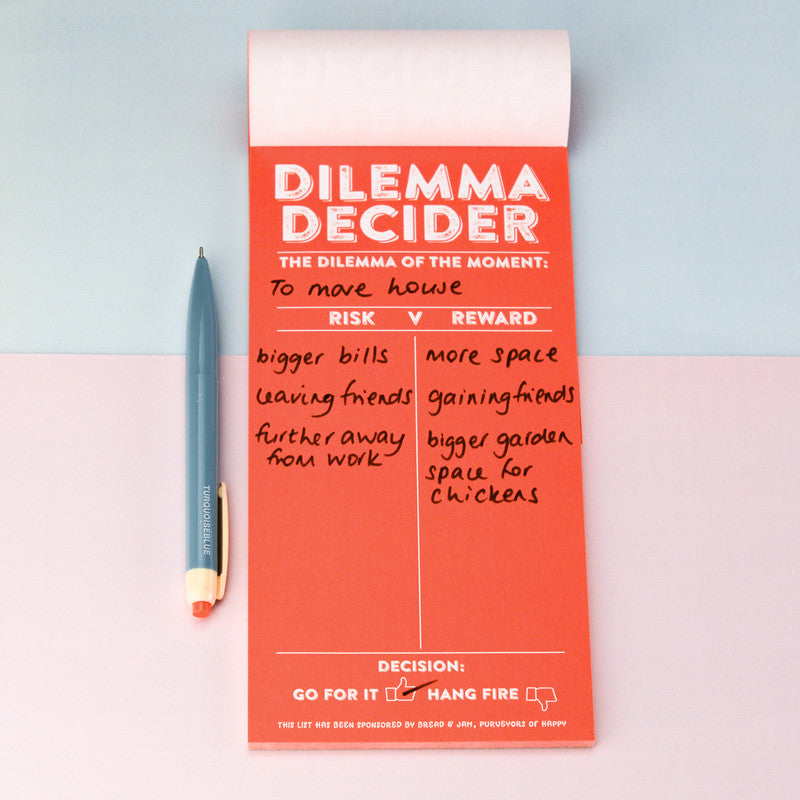 DILEMMA
DECIDER
THE DILEMMA OF THE MOMENT:
To move house
RISK V REWARD
bigger bills
leaving friends
further away
from work
more space
gaining friends
bigger garden
space for
chickens
DECISION:
GO FOR IT HANG FIRE
THIS LIST HAS BEEN SPONSORED BY BREAD & JAM, PURVEYORS OF HAPPY
TURQUOISEBLUE